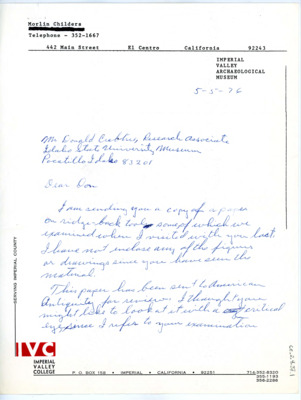 Morlin Childers
Telephone - 352-1667
442 Main Street El Centro California 92243
IMPERIAL
VALLEY
ARCHAEOLOGICAL
MUSEUM
5-5-76
Mr Donald Crabtree, Research Associate
Idaho State University Museum
Pocatello Idaho 83201
Dear Don
I am sending you a copy of a paper
on ridgeback tools some of which we
examined when I visited with you last
I have not enclose any of the figures
or drawings since you have seen the
material.
This paper has been sent to American
Antiquity for review. I thought you
might like to look at it with a critical
eye since I refer to your examination
SERVING IMPERIAL COUNTY
IVC
IMPERIAL
VALLEY
COLLEGE
P. O. BOX 158 • IMPERIAL • CALIFORNIA • 92251
714-352-8320
355-1193
356-2266